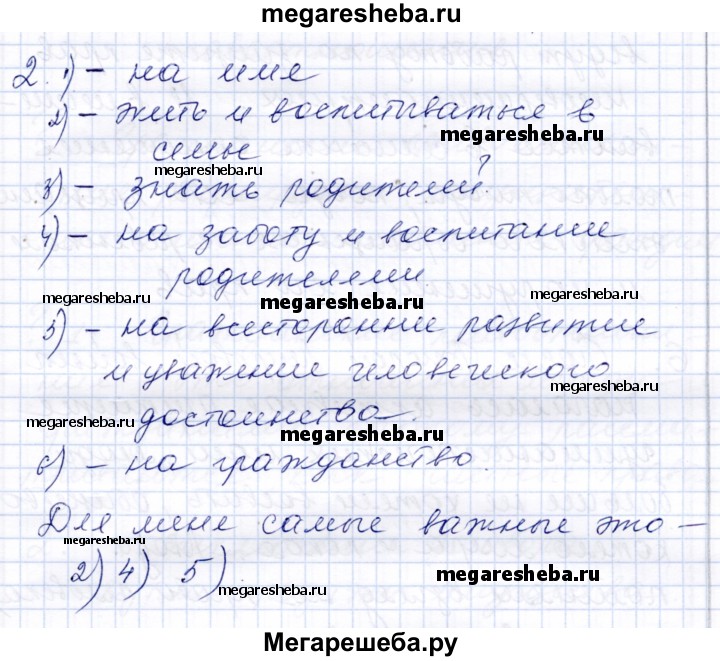 megaresheba.ru
2. 1) – на имя
2) – жить и воспитываться в
megaresheba.ru
семье
megaresheba.ru
3) – знать родителей?
4) – на заботу и воспитание
родителями
megaresheba.ru megaresheba.ru megaresheba.ru
5) – на всесторонние развитие
и уважение человеческого
megaresheba.ru
достоинства.
megaresheba.ru megaresheba.ru
6) – на гражданство.
Для меня самые важные это –
megaresheba.ru
2) 4) 5)
megaresheba.ru megaresheba.ru
Мегарешеба.ру